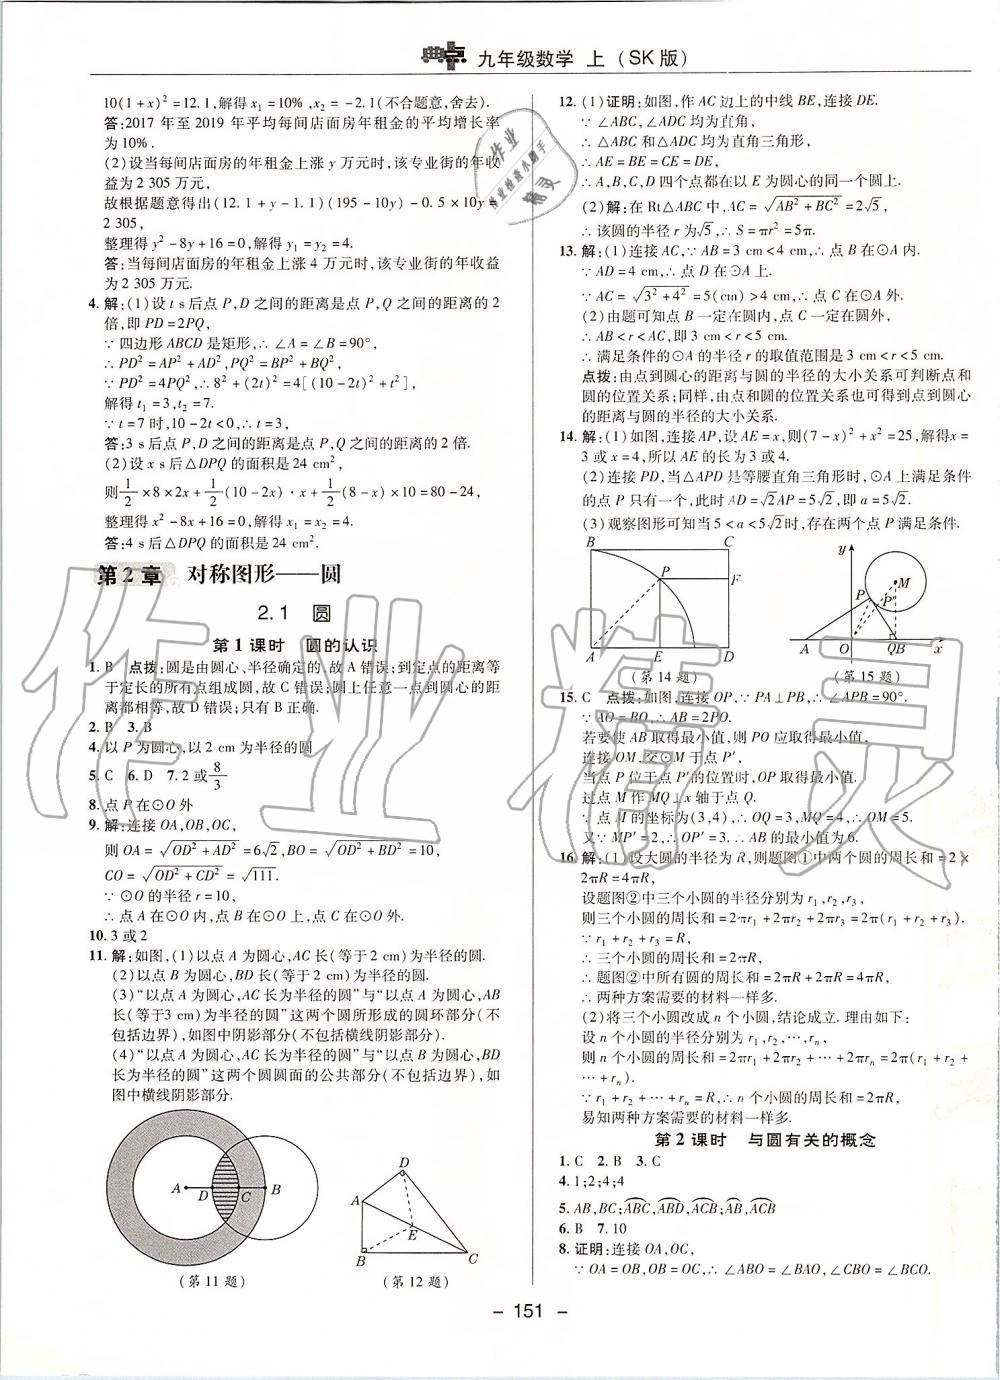 典点 九年级数学 上(SK版)
10(1+x)²=12.1,解得x₁=10%,x₂=-2.1(不合题意,舍去).
答:2017年至2019年平均每间店面房年租金的平均增长率
为10%.
(2)设当每间店面房的年租金上涨y万元时,该专业街的年收
益为2 305万元,
故根据题意得出(12.1+y-1.1)(195-10y)-0.5×10y=
2 305,
整理得y²-8y+16=0,解得y₁=y₂=4.
答:当每间店面房的年租金上涨4万元时,该专业街的年收益
为2 305万元.
4.解:(1)设t s后点P,D之间的距离是点P,Q之间的距离的2
倍,即PD=2PQ,
∵四边形ABCD是矩形,∴∠A=∠B=90°,
∴PD²=AP²+AD²,PQ²=BP²+BQ²,
∵PD²=4PQ²,∴8²+(2t)²=4[(10-2t)²+t²],
解得t₁=3,t₂=7.
∵t=7时,10-2t<0,∴t=3,
答:3 s后点P,D之间的距离是点P,Q之间的距离的2倍.
(2)设x s后△DPQ的面积是24 cm²,
则1/2×8×2x+1/2(10-2x)·x+1/2(8-x)×10=80-24,
整理得x²-8x+16=0,解得x₁=x₂=4.
答:4 s后△DPQ的面积是24 cm².
第2章 对称图形——圆
2.1 圆
第1课时 圆的认识
1.B 点拨:圆是由圆心、半径确定的,故A错误;到定点的距离等
于定长的所有点组成圆,故C错误;圆上任意一点到圆心的距
离都相等,故D错误;只有B正确.
2.B 3.B
4.以P为圆心,以2 cm为半径的圆
5.C 6.D 7.2或8/3
8.点P在⊙O外
9.解:连接OA,OB,OC,
则OA=√(OD²+AD²)=6√2,BO=√(OD²+BD²)=10,
CO=√(OD²+CD²)=√111.
∵⊙O的半径r=10,
∴点A在⊙O内,点B在⊙O上,点C在⊙O外.
10.3或2
11.解:如图,(1)以点A为圆心,AC长(等于2 cm)为半径的圆.
(2)以点B为圆心,BD长(等于2 cm)为半径的圆.
(3)“以点A为圆心,AC长为半径的圆”与“以点A为圆心,AB
长(等于3 cm)为半径的圆”这两个圆所形成的圆环部分(不
包括边界),如图中阴影部分(不包括横线阴影部分).
(4)“以点A为圆心,AC长为半径的圆”与“以点B为圆心,BD
长为半径的圆”这两个圆圆面的公共部分(不包括边界),如
图中横线阴影部分.
A D C B
(第11题)
D
A
E
B C
(第12题)
12.(1)证明:如图,作AC边上的中线BE,连接DE.
∵∠ABC,∠ADC均为直角,
∴△ABC和△ADC均为直角三角形,
∴AE=BE=CE=DE,
∴A,B,C,D四个点都在以E为圆心的同一个圆上.
(2)解:在Rt△ABC中,AC=√(AB²+BC²)=2√5,
∴该圆的半径r为√5,∴S=πr²=5π.
13.解:(1)连接AC,∵AB=3 cm<4 cm,∴点B在⊙A内.
∵AD=4 cm,∴点D在⊙A上.
∵AC=√(3²+4²)=5(cm)>4 cm,∴点C在⊙A外.
(2)由题可知点B一定在圆内,点C一定在圆外,
∴AB<r<AC,即3 cm<r<5 cm.
∴满足条件的⊙A的半径r的取值范围是3 cm<r<5 cm.
点拨:由点到圆心的距离与圆的半径的大小关系可判断点和
圆的位置关系;同样,由点和圆的位置关系也可得到点到圆心
的距离与圆的半径的大小关系.
14.解:(1)如图,连接AP,设AE=x,则(7-x)²+x²=25,解得x=
3或x=4,所以AE的长为3或4.
(2)连接PD,当△APD是等腰直角三角形时,⊙A上满足条件
的点P只有一个,此时AD=√2AP=5√2,即a=5√2.
(3)观察图形可知当5<a<5√2时,存在两个点P满足条件.
B C
P F
A E D
(第14题)
y
M
P P′
A O QB x
(第15题)
15.C 点拨:如图,连接OP,∵PA⊥PB,∴∠APB=90°.
∵AO=BO,∴AB=2PO.
若要使AB取得最小值,则PO应取得最小值,
连接OM,交⊙M于点P′,
当点P位于点P′的位置时,OP取得最小值.
过点M作MQ⊥x轴于点Q.
∵点M的坐标为(3,4),∴OQ=3,MQ=4,∴OM=5.
又∵MP′=2,∴OP′=3.∴AB的最小值为6.
16.解:(1)设大圆的半径为R,则题图①中两个圆的周长和=2×
2πR=4πR,
设题图②中三个小圆的半径分别为r₁,r₂,r₃,
则三个小圆的周长和=2πr₁+2πr₂+2πr₃=2π(r₁+r₂+r₃).
∵r₁+r₂+r₃=R,
∴三个小圆的周长和=2πR,
∴题图②中所有圆的周长和=2πR+2πR=4πR,
∴两种方案需要的材料一样多.
(2)将三个小圆改成n个小圆,结论成立.理由如下:
设n个小圆的半径分别为r₁,r₂,⋯,rₙ,
则n个小圆的周长和=2πr₁+2πr₂+⋯+2πrₙ=2π(r₁+r₂+
⋯+rₙ).
∵r₁+r₂+⋯+rₙ=R,∴n个小圆的周长和=2πR,
易知两种方案需要的材料一样多.
第2课时 与圆有关的概念
1.C 2.B 3.C
4.1;2;4;4
5.AB,BC;ABC,ABD,ACD,ACB;AB,ACB
6.B 7.10
8.证明:连接OA,OC,
∵OA=OB,OB=OC,∴∠ABO=∠BAO,∠CBO=∠BCO.
- 151 -
作业精灵
作业
作业检查小助手
精灵